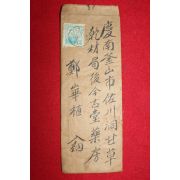 慶南釜山市佐川洞甘草
乾材局後今古堂藥房
鄭華植